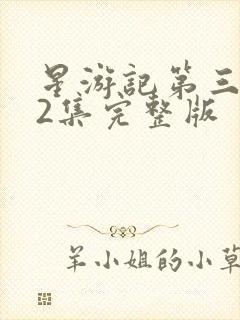 星游记第三
2集完整版
羊小姐的小草